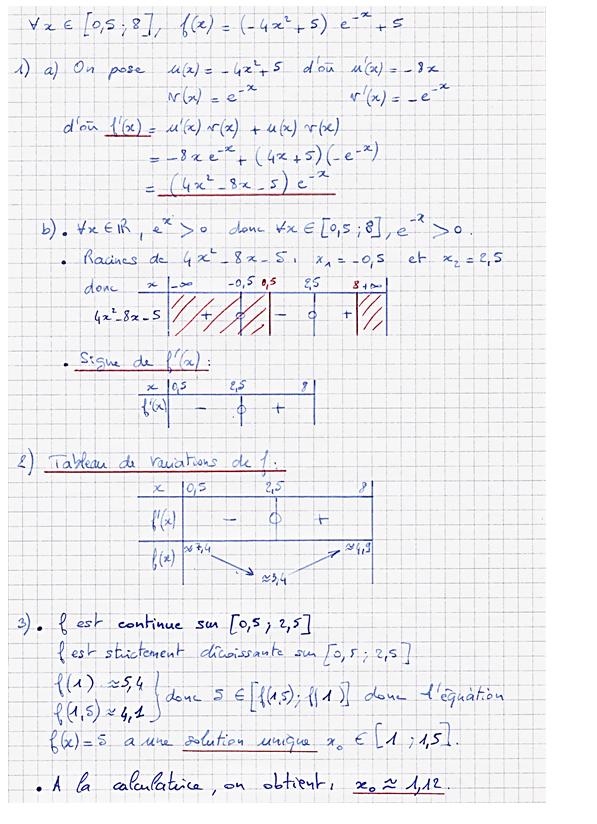 ∀x ∈ [0,5 ; 8], f(x) = (-4x² + 5) e^-x + 5
1) a) On pose u(x) = -4x² + 5 d'où u'(x) = -8x
v(x) = e^-x v'(x) = -e^-x
d'où f'(x) = u'(x) v(x) + u(x) v(x)
= -8x e^-x + (4x + 5)(-e^-x)
= (4x² - 8x - 5) e^-x
b) • ∀x ∈ ℝ, e^x > 0 donc ∀x ∈ [0,5 ; 8], e^-x > 0.
• Racines de 4x² - 8x - 5 : x₁ = -0,5 et x₂ = 2,5
donc x -∞ -0,5 0,5 2,5 8 +∞
4x² - 8x - 5 + 0 - 0 +
• Signe de f'(x) :
x 0,5 2,5 8
f'(x) - 0 +
2) Tableau de variations de f :
x 0,5 2,5 8
f'(x) - 0 +
f(x) ≈7,4 ≈3,4 ≈4,9
3) • f est continue sur [0,5 ; 2,5]
f est strictement décroissante sur [0,5 ; 2,5]
f(1) ≈ 5,4
f(1,5) ≈ 4,1 } donc 5 ∈ [f(1,5) ; f(1)] donc l'équation
f(x) = 5 a une solution unique x₀ ∈ [1 ; 1,5].
• A la calculatrice, on obtient : x₀ ≈ 1,12.